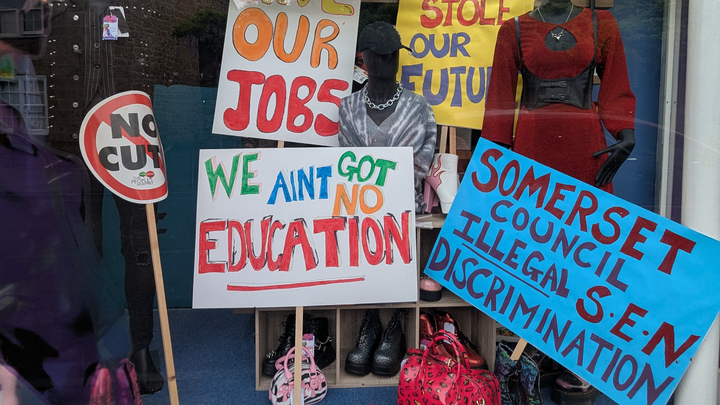 OUR
JOBS
STOLE
OUR
NO
CUT
WE AINT GOT
NO
EDUCATION
SOMERSET
COUNCIL
ILLEGAL S.E.N
DISCRIMINATION